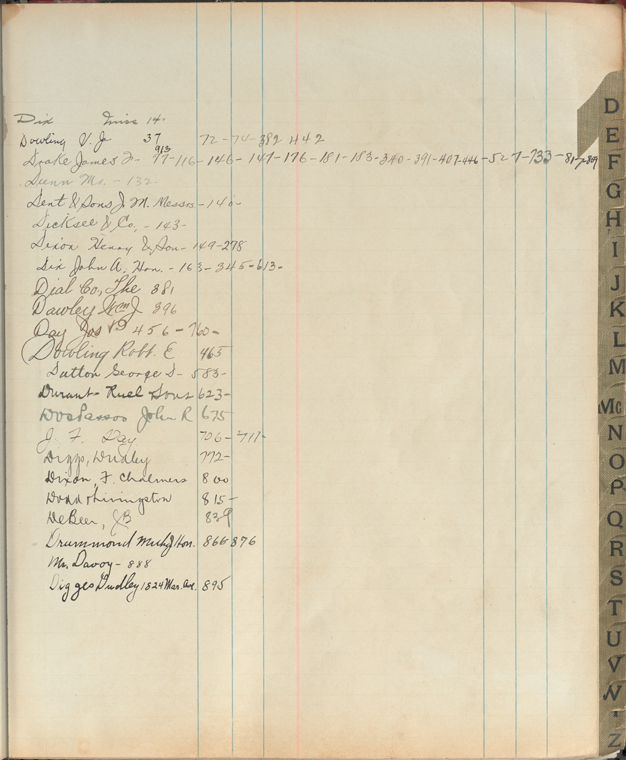 Dix Miss 14-
Dowling V. J 37 72-74-382 442
913
Drake James F- 77-116-146-147-176-181-183-340-391-407-446-527-733-817-889
Dunn Mr. - 132
Dent & Sons J. M. Messrs - 140-
Dicksee & Co. - 143-
Dixon Henry & Son - 149-278
Dix John A. Hon. - 163-345-613-
Dial Co, The 381
Dawley Wm J 396
Day Jos P 456-760-
Dowling Robt. E 465
Dutton George D- 583-
Durant-Ruel Sons 623-
Dos Passos John R 675
J. F. Day 706-711-
Diggs, Dudley 772-
Dixon, F. Chalmers 800
Dodd & Livingston 815-
DeBeer, JB 839
Drummond Hon. 866 876
Mr. Davoy - 888
Digges Dudley 1824 Mar. Ave. 895
D
E
F
G
H
I
J
K
L
M
Mc
N
O
P
Q
R
S
T
U
V
W
Z